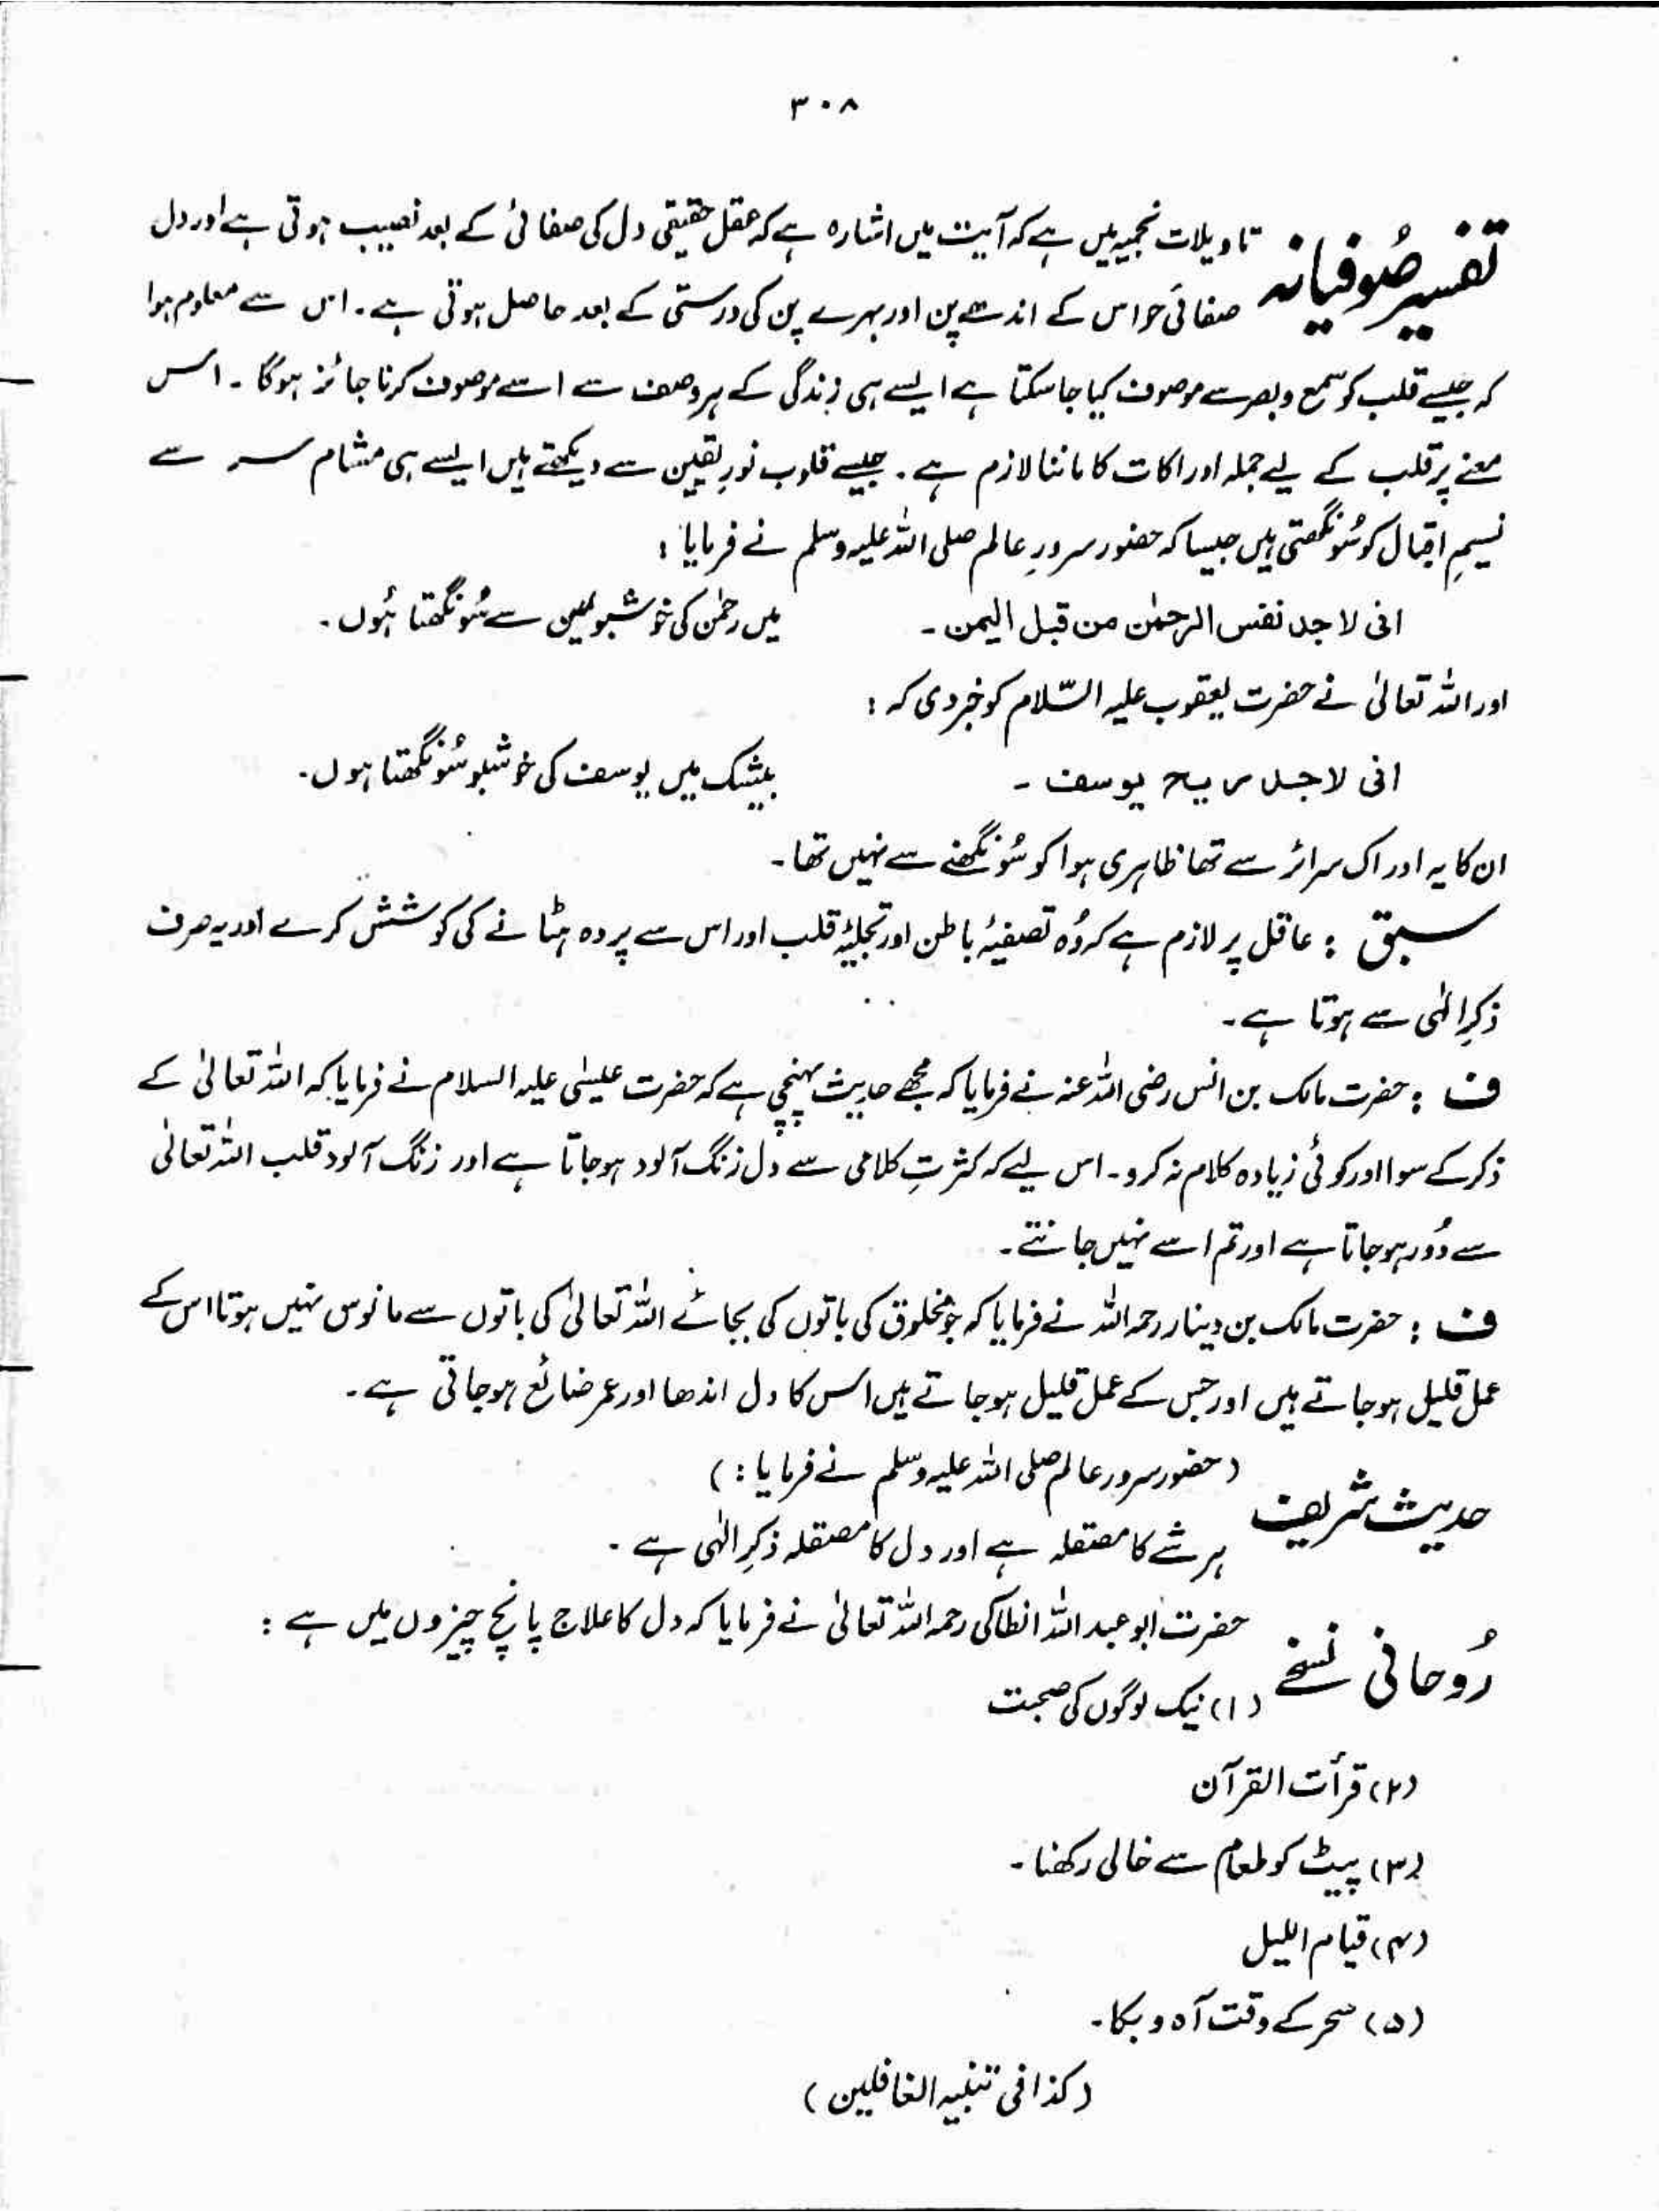 ۳۰۸
تفسیر صُوفیانہ تاویلات نجمیہ میں ہے کہ آیت میں اشارہ ہے کہ عقل حقیقی دل کی صفائی کے بعد نصیب ہوتی ہے اور دل
صفائی حواس کے اندھے پن اور بہرے پن کی درستی کے بعد حاصل ہوتی ہے۔ اس سے معلوم ہوا
کہ جیسے قلب کو سمع و بصر سے موصوف کیا جا سکتا ہے ایسے ہی زندگی کے ہر وصف سے اسے موصوف کرنا جائز ہوگا۔ اس
معنے پر قلب کے لیے جملہ ادراکات کا ماننا لازم ہے۔ جیسے قلوب نورِ یقین سے دیکھتے ہیں ایسے ہی مشام سر سے
نسیمِ اقبال کو سُونگھتی ہیں جیسا کہ حضور سرورِ عالم صلی اللہ علیہ وسلم نے فرمایا :
انی لاجد نفس الرحمٰن من قبل الیمن۔ میں رحمٰن کی خوشبو یمین سے سُونگھتا ہُوں۔
اور اللہ تعالیٰ نے حضرت یعقوب علیہ السّلام کو خبر دی کہ :
انی لاجد ریح یوسف ۔ بیشک میں یوسف کی خوشبو سُونگھتا ہوں۔
ان کا یہ ادراک سرائر سے تھا ظاہری ہوا کو سُونگھنے سے نہیں تھا۔
سبق : عاقل پر لازم ہے کہ وُہ تصفیۂ باطن اور تجلیۂ قلب اور اس سے پردہ ہٹانے کی کوشش کرے اور یہ صرف
ذکرِ الٰہی سے ہوتا ہے۔
ف : حضرت مالک بن انس رضی اللہ عنہ نے فرمایا کہ مجھے حدیث پہنچی ہے کہ حضرت عیسٰی علیہ السلام نے فرمایا کہ اللہ تعالیٰ کے
ذکر کے سوا اور کوئی زیادہ کلام نہ کرو۔ اس لیے کہ کثرتِ کلامی سے دل زنگ آلود ہوجاتا ہے اور زنگ آلود قلب اللہ تعالیٰ
سے دُور ہوجاتا ہے اور تم اسے نہیں جانتے۔
ف : حضرت مالک بن دینار رحمہ اللہ نے فرمایا کہ جو مخلوق کی باتوں کی بجائے اللہ تعالیٰ کی باتوں سے مانوس نہیں ہوتا اس کے
عمل قلیل ہوجاتے ہیں اور جس کے عمل قلیل ہوجاتے ہیں اس کا دل اندھا اور عمر ضائع ہوجاتی ہے۔
حدیث شریف (حضور سرور عالم صلی اللہ علیہ وسلم نے فرمایا :)
ہر شے کا مصقلہ ہے اور دل کا مصقلہ ذکرِ الٰہی ہے ۔
رُوحانی نسخے حضرت ابو عبد اللہ انطاکی رحمہ اللہ تعالیٰ نے فرمایا کہ دل کا علاج پانچ چیزوں میں ہے :
(۱) نیک لوگوں کی صحبت
(۲) قرأت القرآن
(۳) پیٹ کو طعام سے خالی رکھنا۔
(۴) قیام اللیل
(۵) سحر کے وقت آہ و بکا۔
(کذا فی تنبیہ الغافلین)